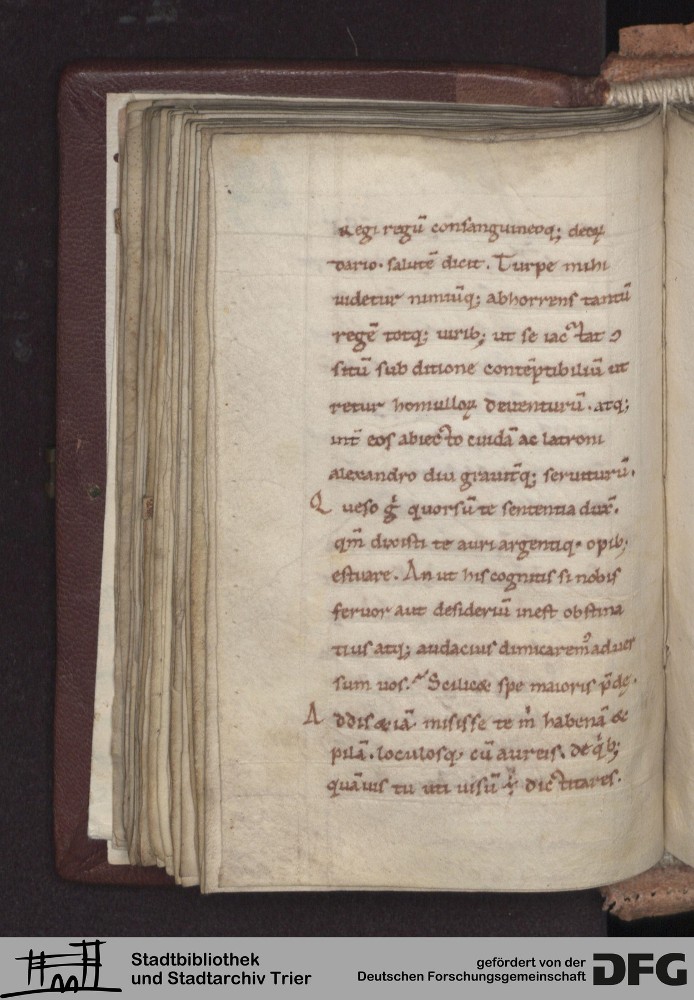 Regi regū consanguineoq; deoꝝ
dario. salutē dicit. Turpe mihi
uidetur nimiūq; abhorrens tantū
regē totq; uirib; ut se iactat
sitū sub ditione contēptibiliū ut
retur homulloꝝ deuenturū. atq;
int̄ eos abiecto cuidā ac latroni
alexandro diu grauit̄q; seruiturū.
Queso quorsū te sententia
qm̄ dixisti te auri argentiq. opib;
estuare. An ut his cognitis si nobis
feruor aut desideriū inest obstina
tius atq; audacius dimicarem᷒ aduer
sum uos. Scilicet spe maioris p̄dę.
Addis & iā misisse te m̍ habenā &
pilā. loculosq. cū aureis. de qͥb;
quāuis tu uti uisū dictitares.
Stadtbibliothek
und Stadtarchiv Trier
gefördert von der
Deutschen Forschungsgemeinschaft
DFG